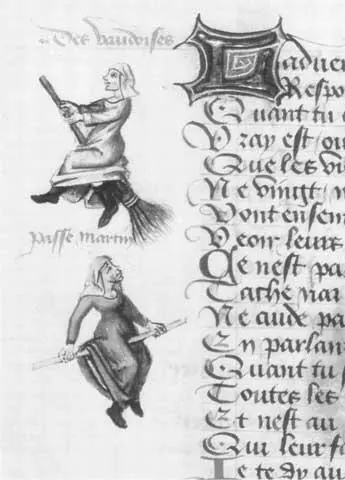 Des vaudoises
passe martin
Ladver
Respo
Quant tu
Vray est ou
Que les vi
Ne vingt n
Vont ensem
Veoir leurs
Ce nest pa
Tache nar
Ne aude pa
En parlan
Quant tu
Toutes les
Et nest au
Qui leur fa
Je te dy au